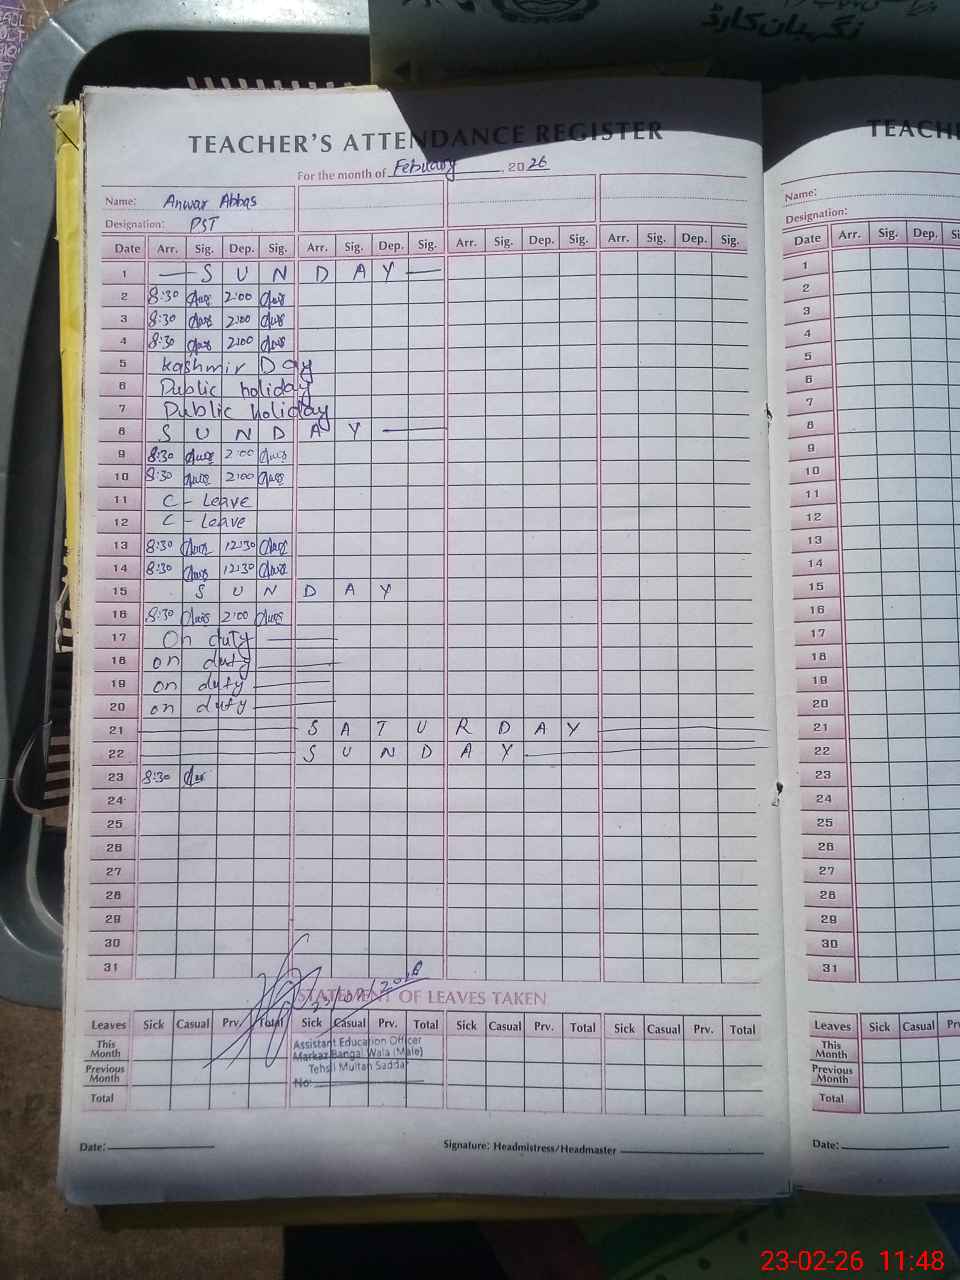 نگہبان کارڈ
TEACHER'S ATTENDANCE REGISTER
For the month of February 2026
Name: Anwar Abbas
Designation: PST
Date Arr. Sig. Dep. Sig. Arr. Sig. Dep. Sig. Arr. Sig. Dep. Sig. Arr. Sig. Dep. Sig.
1 S U N D A Y
2 8:30 2:00
3 8:30 2:00
4 8:30 2:00
5 Kashmir Day
6 Public holiday
7 Public holiday
8 S U N D A Y
9 8:30 2:00
10 8:30 2:00
11 C - Leave
12 C - Leave
13 8:30 12:30
14 8:30 12:30
15 S U N D A Y
16 8:30 2:00
17 On duty
18 on duty
19 on duty
20 on duty
21 S A T U R D A Y
22 S U N D A Y
23 8:30
24
25
26
27
28
29
30
31
STATEMENT OF LEAVES TAKEN
Leaves Sick Casual Prv. Total Sick Casual Prv. Total Sick Casual Prv. Total Sick Casual Prv. Total
This Month
Previous Month
Total
Assistant Education Officer
Markaz Bangal Wala (Male)
Tehsil Multan Saddar
No:
Date: Signature: Headmistress/Headmaster
TEACH
Name:
Designation:
Date Arr. Sig. Dep.
1
2
3
4
5
6
7
8
9
10
11
12
13
14
15
16
17
18
19
20
21
22
23
24
25
26
27
28
29
30
31
Leaves Sick Casual
This Month
Previous Month
Total
Date:
23-02-26 11:48